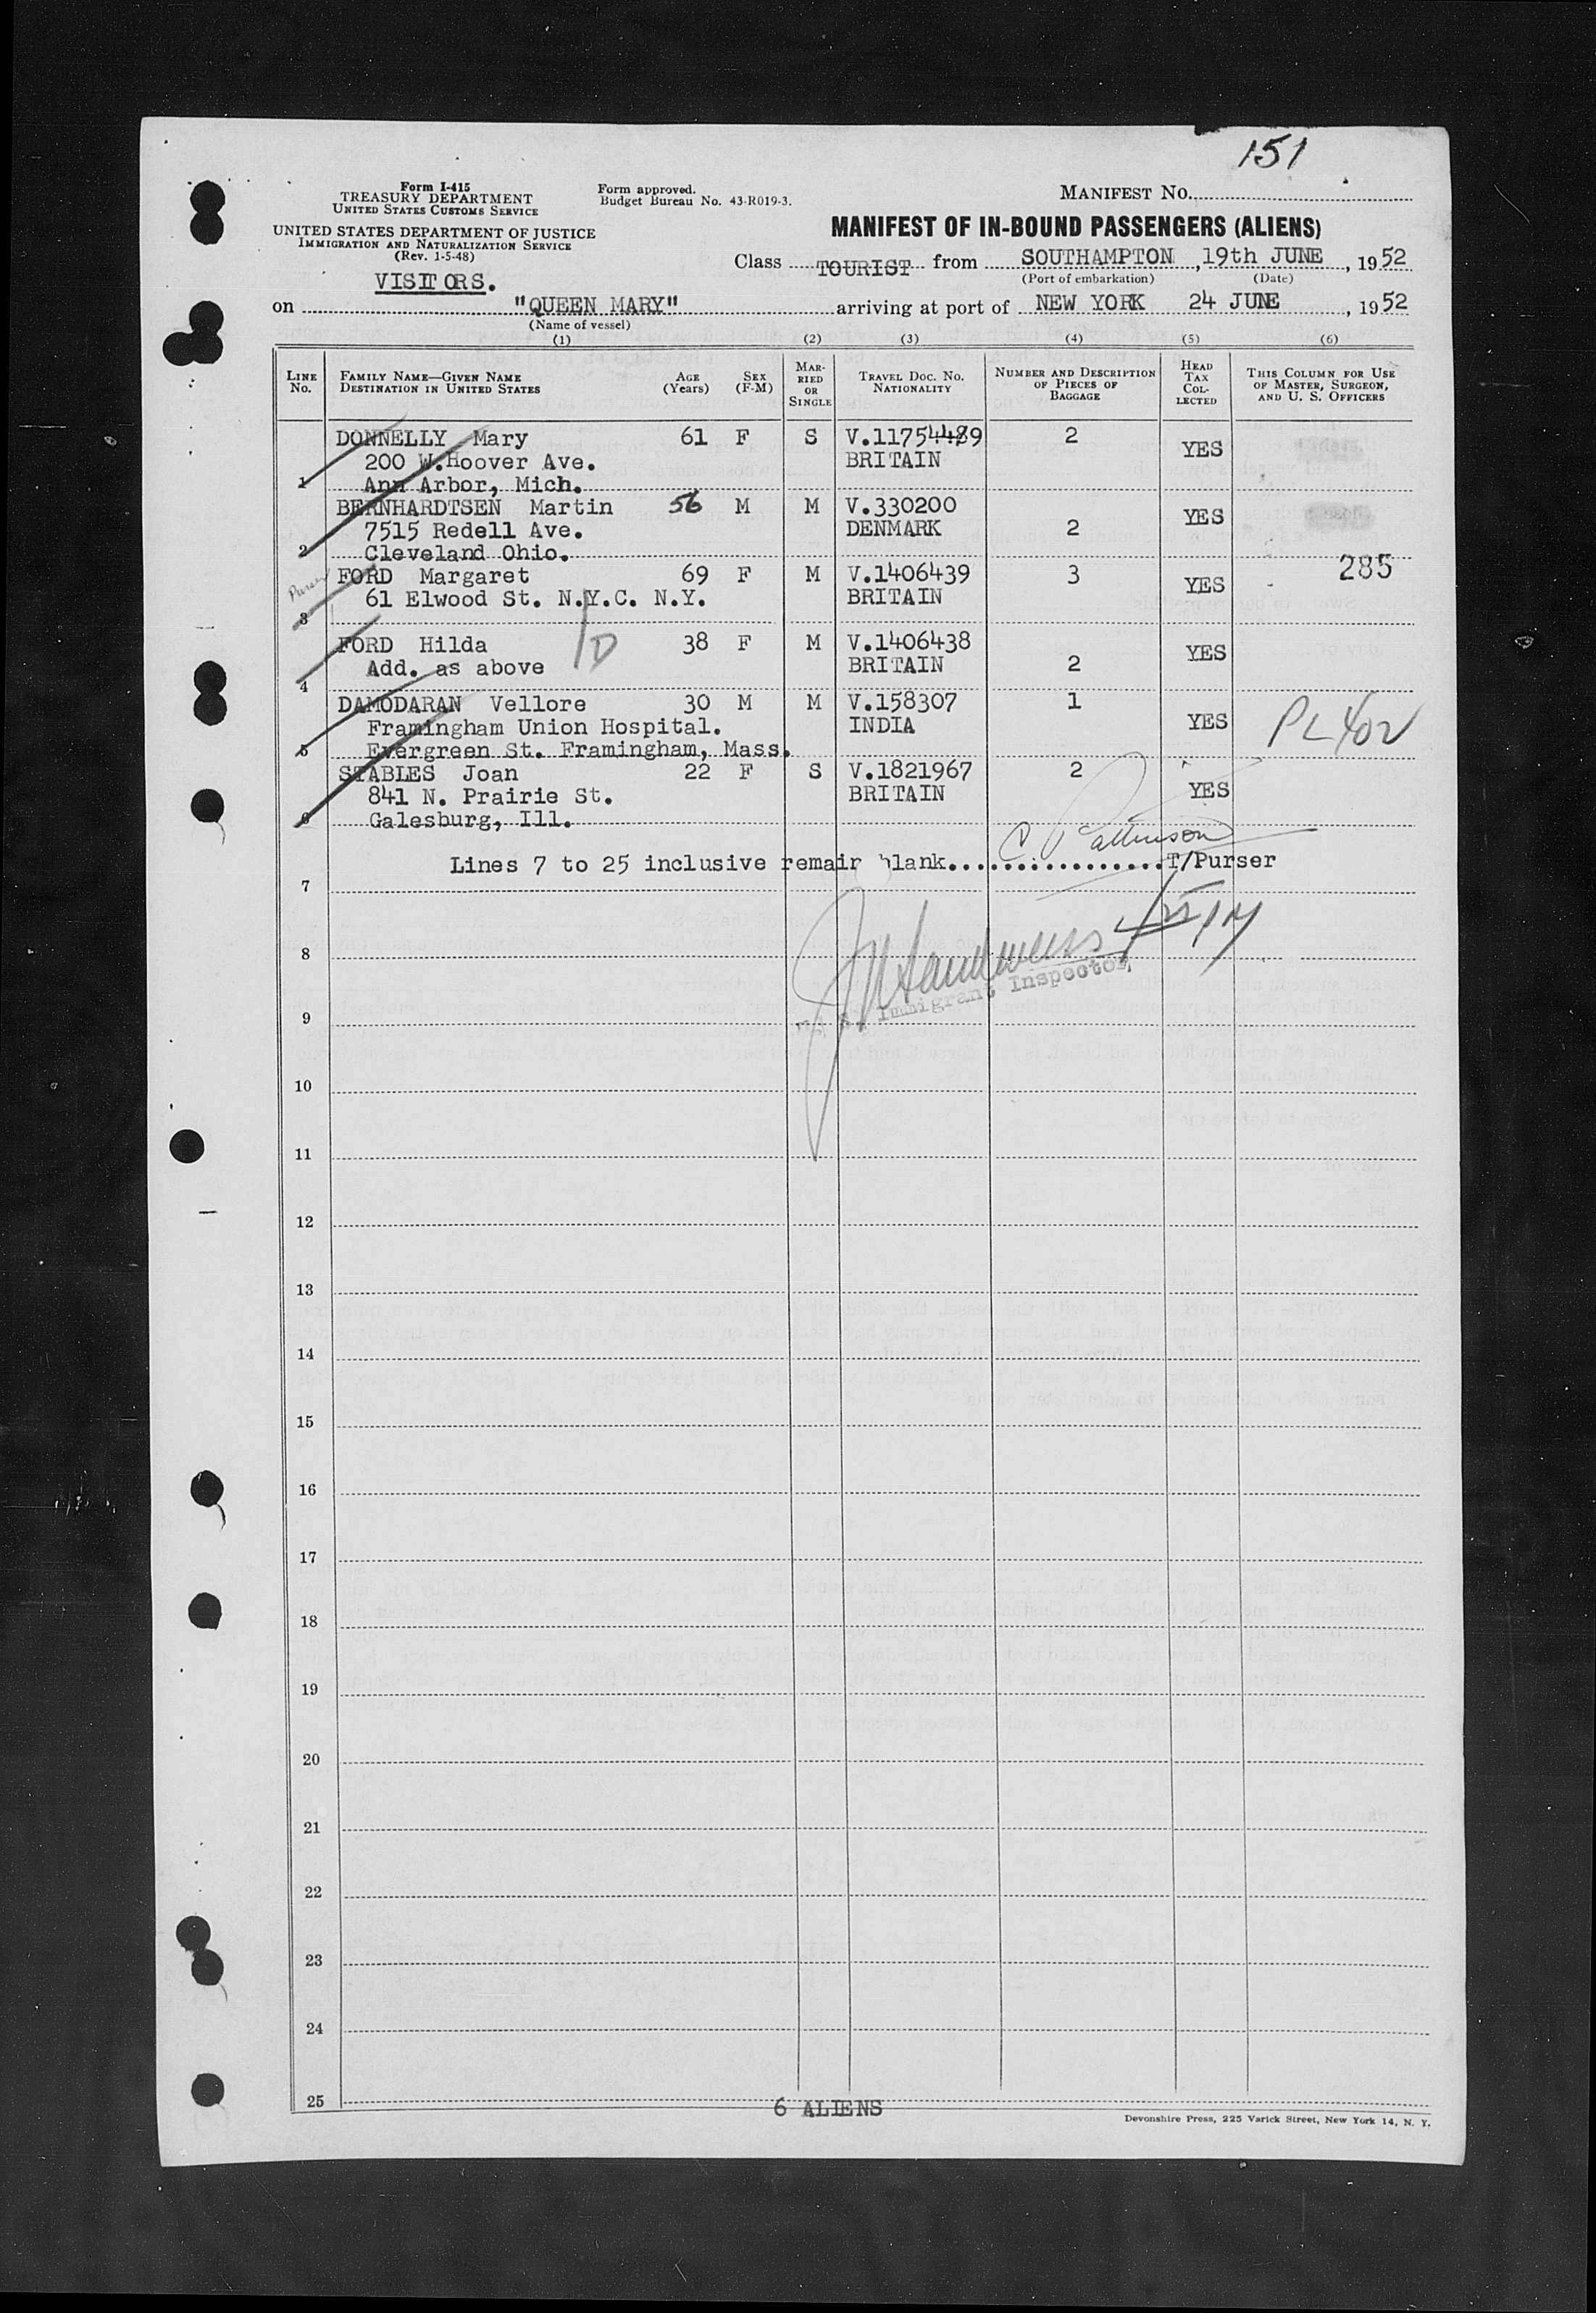 151
Form I-415
TREASURY DEPARTMENT
UNITED STATES CUSTOMS SERVICE
UNITED STATES DEPARTMENT OF JUSTICE
IMMIGRATION AND NATURALIZATION SERVICE
(Rev. 1-5-48)
VISITORS.
Form approved.
Budget Bureau No. 43-R019-3.
MANIFEST NO.
MANIFEST OF IN-BOUND PASSENGERS (ALIENS)
Class TOURIST from SOUTHAMPTON, 19th JUNE, 1952
(Port of embarkation) (Date)
on "QUEEN MARY" arriving at port of NEW YORK 24 JUNE, 1952
(Name of vessel)
(1) (2) (3) (4) (5) (6)
LINE NO. FAMILY NAME—GIVEN NAME DESTINATION IN UNITED STATES AGE (Years) SEX (F-M) MARRIED OR SINGLE TRAVEL DOC. NO. NATIONALITY NUMBER AND DESCRIPTION OF PIECES OF BAGGAGE HEAD TAX COLLECTED THIS COLUMN FOR USE OF MASTER, SURGEON, AND U. S. OFFICERS
DONNELLY Mary 61 F S V.1175489 2 YES
200 W.Hoover Ave. BRITAIN
1 Ann Arbor, Mich.
BERNHARDTSEN Martin 56 M M V.330200 YES
7515 Redell Ave. DENMARK 2
2 Cleveland Ohio.
Purser FORD Margaret 69 F M V.1406439 3 YES 285
61 Elwood St. N.Y.C. N.Y. BRITAIN
3
FORD Hilda 38 F M V.1406438 YES
Add. as above D BRITAIN 2
4
DAMODARAN Vellore 30 M M V.158307 1 YES PL 402
Framingham Union Hospital. INDIA
5 Evergreen St. Framingham, Mass.
STABLES Joan 22 F S V.1821967 2 YES
841 N. Prairie St. BRITAIN
6 Galesburg, Ill.
Lines 7 to 25 inclusive remain blank. T/Purser
7
8
Immigrant Inspector
9
10
11
12
13
14
15
16
17
18
19
20
21
22
23
24
25
6 ALIENS
Devonshire Press, 225 Varick Street, New York 14, N. Y.